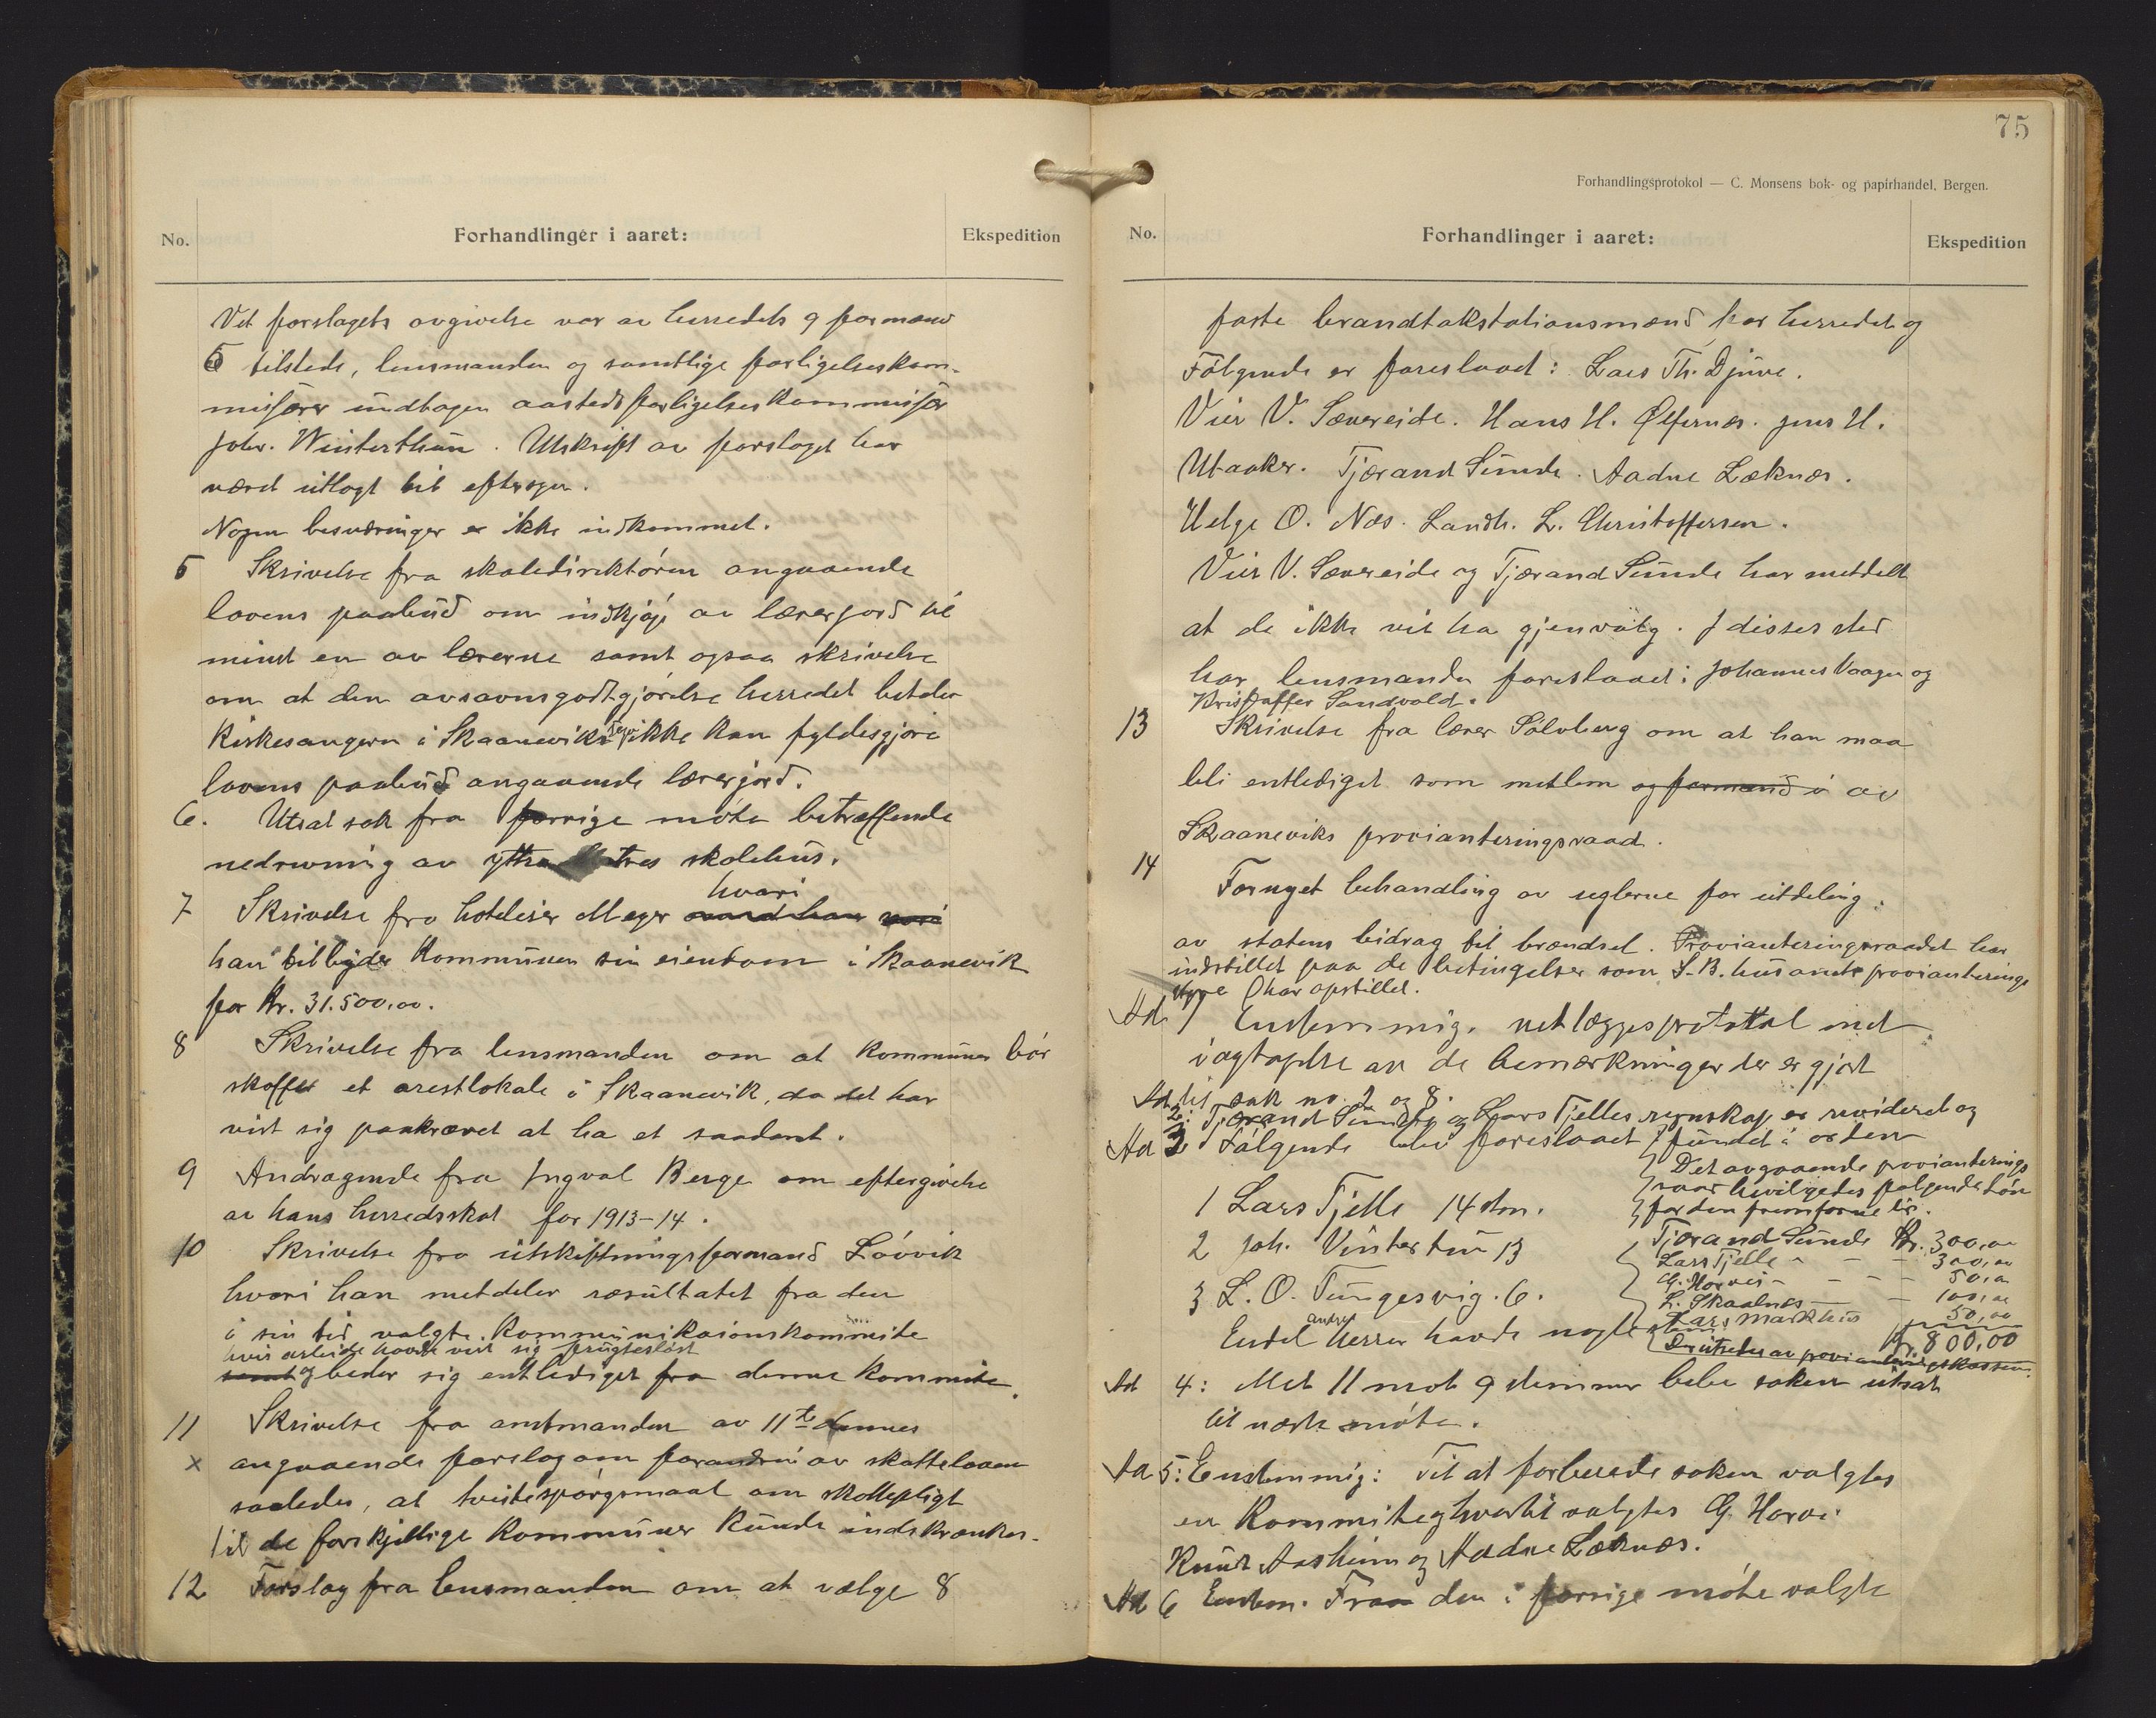 No.
Forhandlinger i aaret:
Ekspedition
Vet forslagets avgivelse var av herredets 9 formænd
5 tilstede, lensmanden og samtlige forligelseskom-
missærer undtagen aastedsforligelseskommissær
Johs. Winterthun. Utskrift av forslaget har
været utlagt til eftersyn.
Nogen besværinger er ikke indkommet.
5 Skrivelse fra skoledirektören angaaende
lovens paabud om indkjöp av lærerjord til
mindst en av lærerne samt ogsaa skrivelse
om at den avsavnsgodtgjörelse herredet betaler
Kirkesangeren i Skaanevik ikke kan fyldesgjöre
lovens paabud angaaende lærerjord.
6. Utsat sak fra forrige möte betræffende
nedrivning av ytre skolehus.
7 Skrivelse fra hoteleier Meyer hvori
han tilbyder Kommunen sin eiendom i Skaanevik
for Kr. 31.500,00.
8 Skrivelse fra lensmanden om at kommunen bör
skaffe et arestlokale i Skaanevik, da det har
vist sig paakrævet at ha et saadant.
9 Andragende fra Ingval Berge om eftergivelse
av hans herredsskat for 1913-14.
10 Skrivelse fra utskiftningsformand Lövvik
hvori han meddeler resultatet fra den
i sin tid valgte Kommunikasionskommite
hvis arbeide havde vist sig frugtesløst
samt og beder sig entlediget fra denne kommite.
11 Skrivelse fra amtmanden av 11te dennes
x angaaende forslag om forandring av skatteloven
saaledes, at tvistespörgsmaal om skattepligt
til de forskjellige Kommuner kunde indskrænkes.
12 Forslag fra lensmanden om at vælge 8
75
Forhandlingsprotokol — C. Monsens bok- og papirhandel, Bergen.
No.
Forhandlinger i aaret:
Ekspedition
faste brandtakstationsmænd for herredet og
Fölgende er foreslaaet: Lars Th. Djuve.
Vier V. Sævereide. Hans H. Ølfernes. Jens H.
Utaaker. Tjærand Sunde. Aadne Læknes.
Helge O. Næs. Landh. L. Christoffersen.
Vier V. Sævereide og Tjærand Sunde har meddelt
at de ikke vil ha gjenvalg. I disses sted
har lensmanden foreslaaet: Johannes Vaagen og
Kristoffer Sandvold.
13 Skrivelse fra lærer Sölvberg om at han maa
bli entlediget som medlem og formand i av
Skaaneviks provianteringsraad.
14 Fornyet behandling av reglerne for utdeling
av statens bidrag til brændsel. Provianteringsraadet har
indstillet paa de betingelser som S.B. husamts provianterings
styre har opstillet.
Ad 1 Enstemmig. vedlægges protokol med
iagtagelse av de bemærkninger der er gjort
til sak no. 2 og 8.
Ad 2: Tjærand Sunde og Lars Tjelles regnskap er revideret og
fundet i orden
Ad 3 Fölgende blev foreslaaet
1 Lars Tjelle 14 stm.
2 Joh. Vintertun 13
3 L. O. Tungesvig. 6.
Endel andre herrer havde nogle stem.
Det avgaaende provianterings
raad bevilgedes fölgende lön
for den fremfarne tid.
Tjærand Sunde Kr. 300,00
Lars Tjelle - - - 300,00
G. Horvei - - - 50,00
L. Skaalnes - - 100,00
Lars Markhus 50,00
Kr. 800,00
Der utredes av provianteringskassen.
Ad 4: Met 11 mot 9 stemmer blev saken utsat
til næste möte.
Ad 5: Enstemmig: Til at forberede saken valgtes
en Kommite, hvortil valgtes G. Horvei
Knut Aasheim og Aadne Læknes.
Ad 6 Enstem. Fraa den i forrige möte valgte